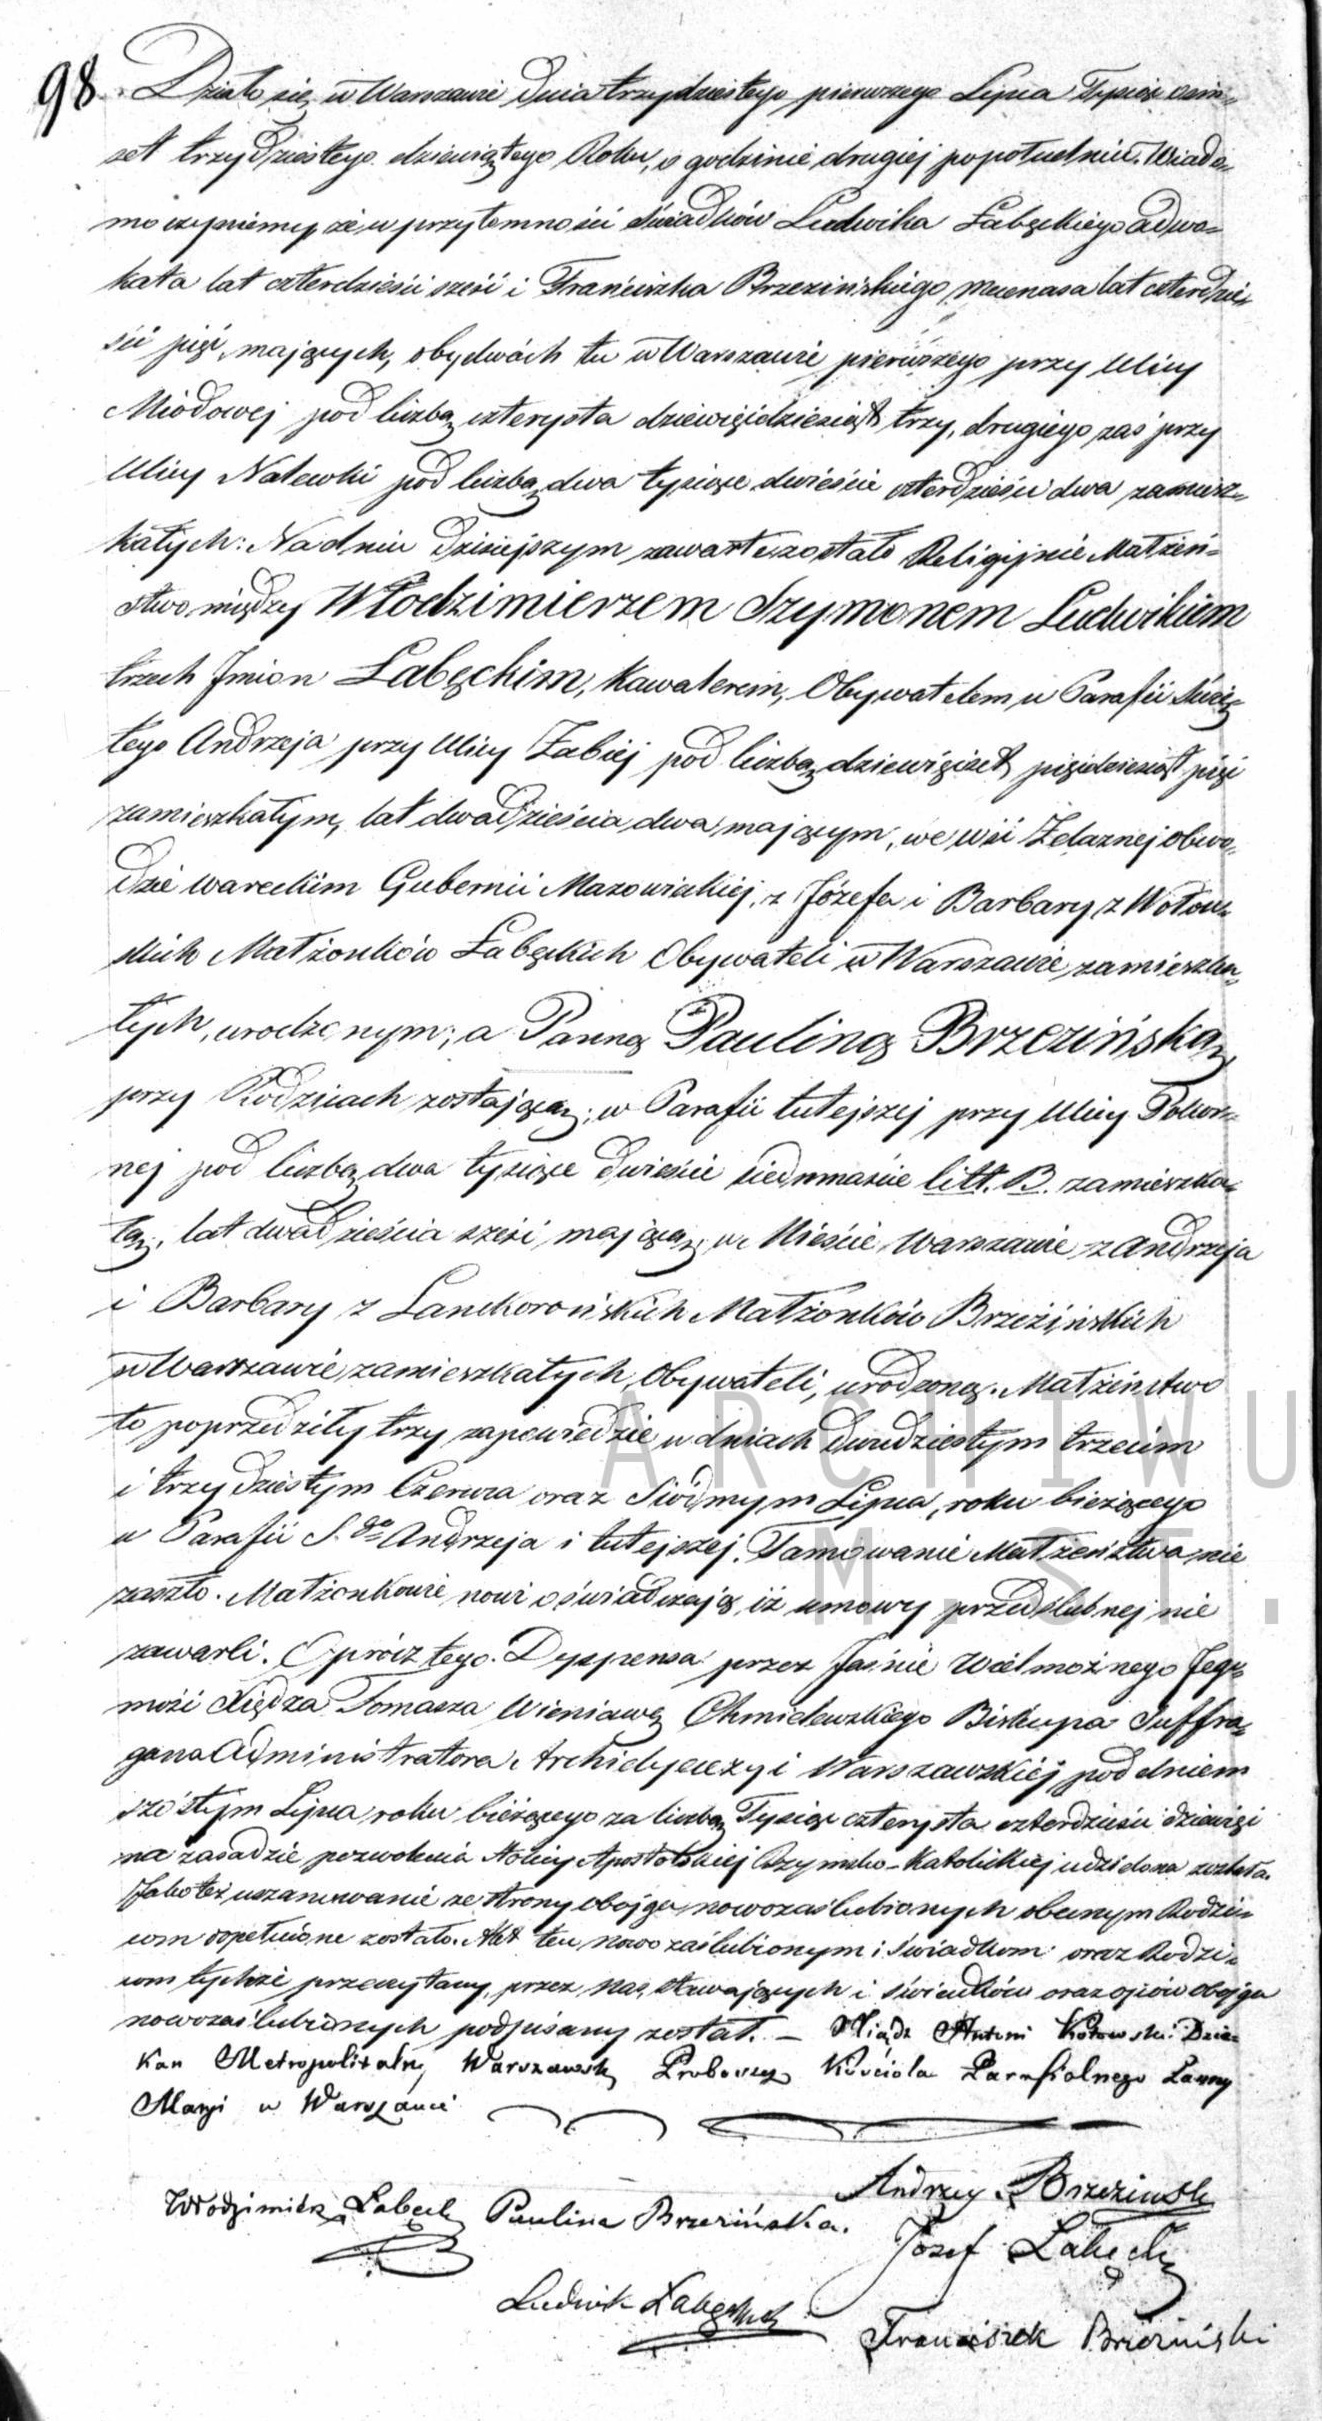 98. Działo się w Warszawie dnia trzydziestego pierwszego Lipca Tysiąc ośm-
set trzydziestego dziewiątego Roku, o godzinie drugiej popołudniu. Wiado-
mo czyniemy że w przytomności świadków Ludwika Łabęckiego adwo-
kata lat czterdzieści sześć i Franciszka Brzezińskiego Mecenasa lat czterdzie-
ści pięć, mających, obydwóch tu w Warszawie pierwszego przy Ulicy
Miodowej pod liczbą czterysta dziewięćdziesiąt trzy, drugiego zaś przy
Ulicy Nalewki pod liczbą dwa tysiące dwieście czterdzieści dwa zamiesz-
kałych: Na dniu dzisiejszym zawarte zostało Religijnie Małżeń-
stwo między Włodzimierzem Szymonem Ludwikiem
trzech Imion Łabęckim, Kawalerem, Obywatelem w Parafii Świę-
tego Andrzeja przy Ulicy Żabiej pod liczbą dziewięćset pięćdziesiąt pięć
zamieszkałym, lat dwadzieścia dwa mającym, we wsi Żelaznej obwo-
dzie wareckim Gubernii Mazowieckiej, z Józefa i Barbary z Wołow-
skich Małżonków Łabęckich Obywateli w Warszawie zamieszka-
łych, urodzonym; a Panną Pauliną Brzezińską
przy Rodzicach zostającą; w Parafii tutejszej przy Ulicy Pokor-
nej pod liczbą dwa tysiące dwieście siedmnaście litt. B. zamieszka-
łą, lat dwadzieścia sześć mającą, w Mieście Warszawie z Andrzeja
i Barbary z Lanckorońskich Małżonków Brzezińskich
w Warszawie zamieszkałych, Obywateli, urodzoną. Małżeństwo
to poprzedziły trzy zapowiedzie w dniach dwudziestym trzecim
i trzydziestym Czerwca oraz Siódmym Lipca, roku bieżącego
w Parafii S.go Andrzeja i tutejszej. Tamowanie Małżeństwa nie
zaszło. Małżonkowie nowi oświadczają, iż umowy przedślubnej nie
zawarli. Oprócz tego. Dyspensa przez Jaśnie Wielmożnego Jego-
mości Xiędza Tomasza Wieniawę Chmielewskiego Biskupa Suffra-
gana Administratora Archidyecezyi Warszawskiej pod dniem
szóstym Lipca roku bieżącego za liczbą Tysiąc czterysta czterdzieści dziewięć
na zasadzie pozwolenia Stolicy Apostolskiej Rzymsko-Katolickiej udzielona została.
Jako też uszanowanie ze strony obojga nowozaślubionych obecnym Rodzi-
com dopełnione zostało. Akt ten nowozaślubionym i świadkom oraz Rodzi-
com tychże przeczytany, przez nas, stawających i świadków oraz ojców obojga
nowozaślubionych podpisany został. – Xiądz Antoni Kotowski Dzie-
kan Metropolitalny Warszawski Proboszcz Kościoła Parafialnego Panny
Maryi w Warszawie
Andrzej Brzezinski
Włodzimierz Łabęcki Paulina Brzezińska.
Józef Łabęcki
Ludwik Łabęcki
Franciszek Brzeziński
ARCHIWU
M ST.